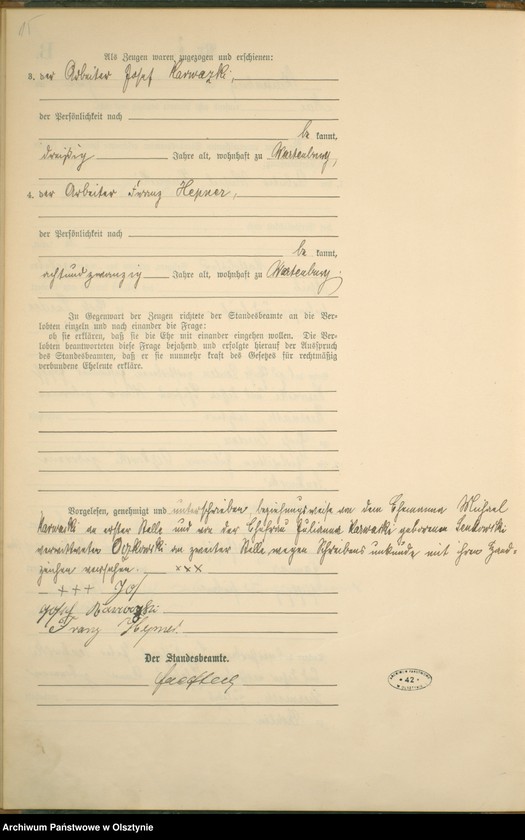 Als Zeugen waren zugezogen und erschienen:
3. der Arbeiter Josef Karwazki,
der Persönlichkeit nach
be kannt,
dreißig Jahre alt, wohnhaft zu Wartenburg,
4. der Arbeiter Franz Hepner,
der Persönlichkeit nach
be kannt,
achtundzwanzig Jahre alt, wohnhaft zu Wartenburg.
In Gegenwart der Zeugen richtete der Standesbeamte an die Ver-
lobten einzeln und nach einander die Frage:
ob sie erklären, daß sie die Ehe mit einander eingehen wollen. Die Ver-
lobten beantworteten diese Frage bejahend und erfolgte hierauf der Ausspruch
des Standesbeamten, daß er sie nunmehr kraft des Gesetzes für rechtmäßig
verbundene Eheleute erkläre.
Vorgelesen, genehmigt und unterschrieben, beziehungsweise von dem Ehemanne Michael
Karwacki an erster Stelle und von der Ehefrau Julianna Karwacki geborenen Senkowski
verwittweten an zweiter Stelle wegen Schreibensunkunde mit ihren Hand-
zeichen versehen. xxx
+++
Josef Karwazki
Franz Hepner
Der Standesbeamte.
42
Archiwum Państwowe w Olsztynie